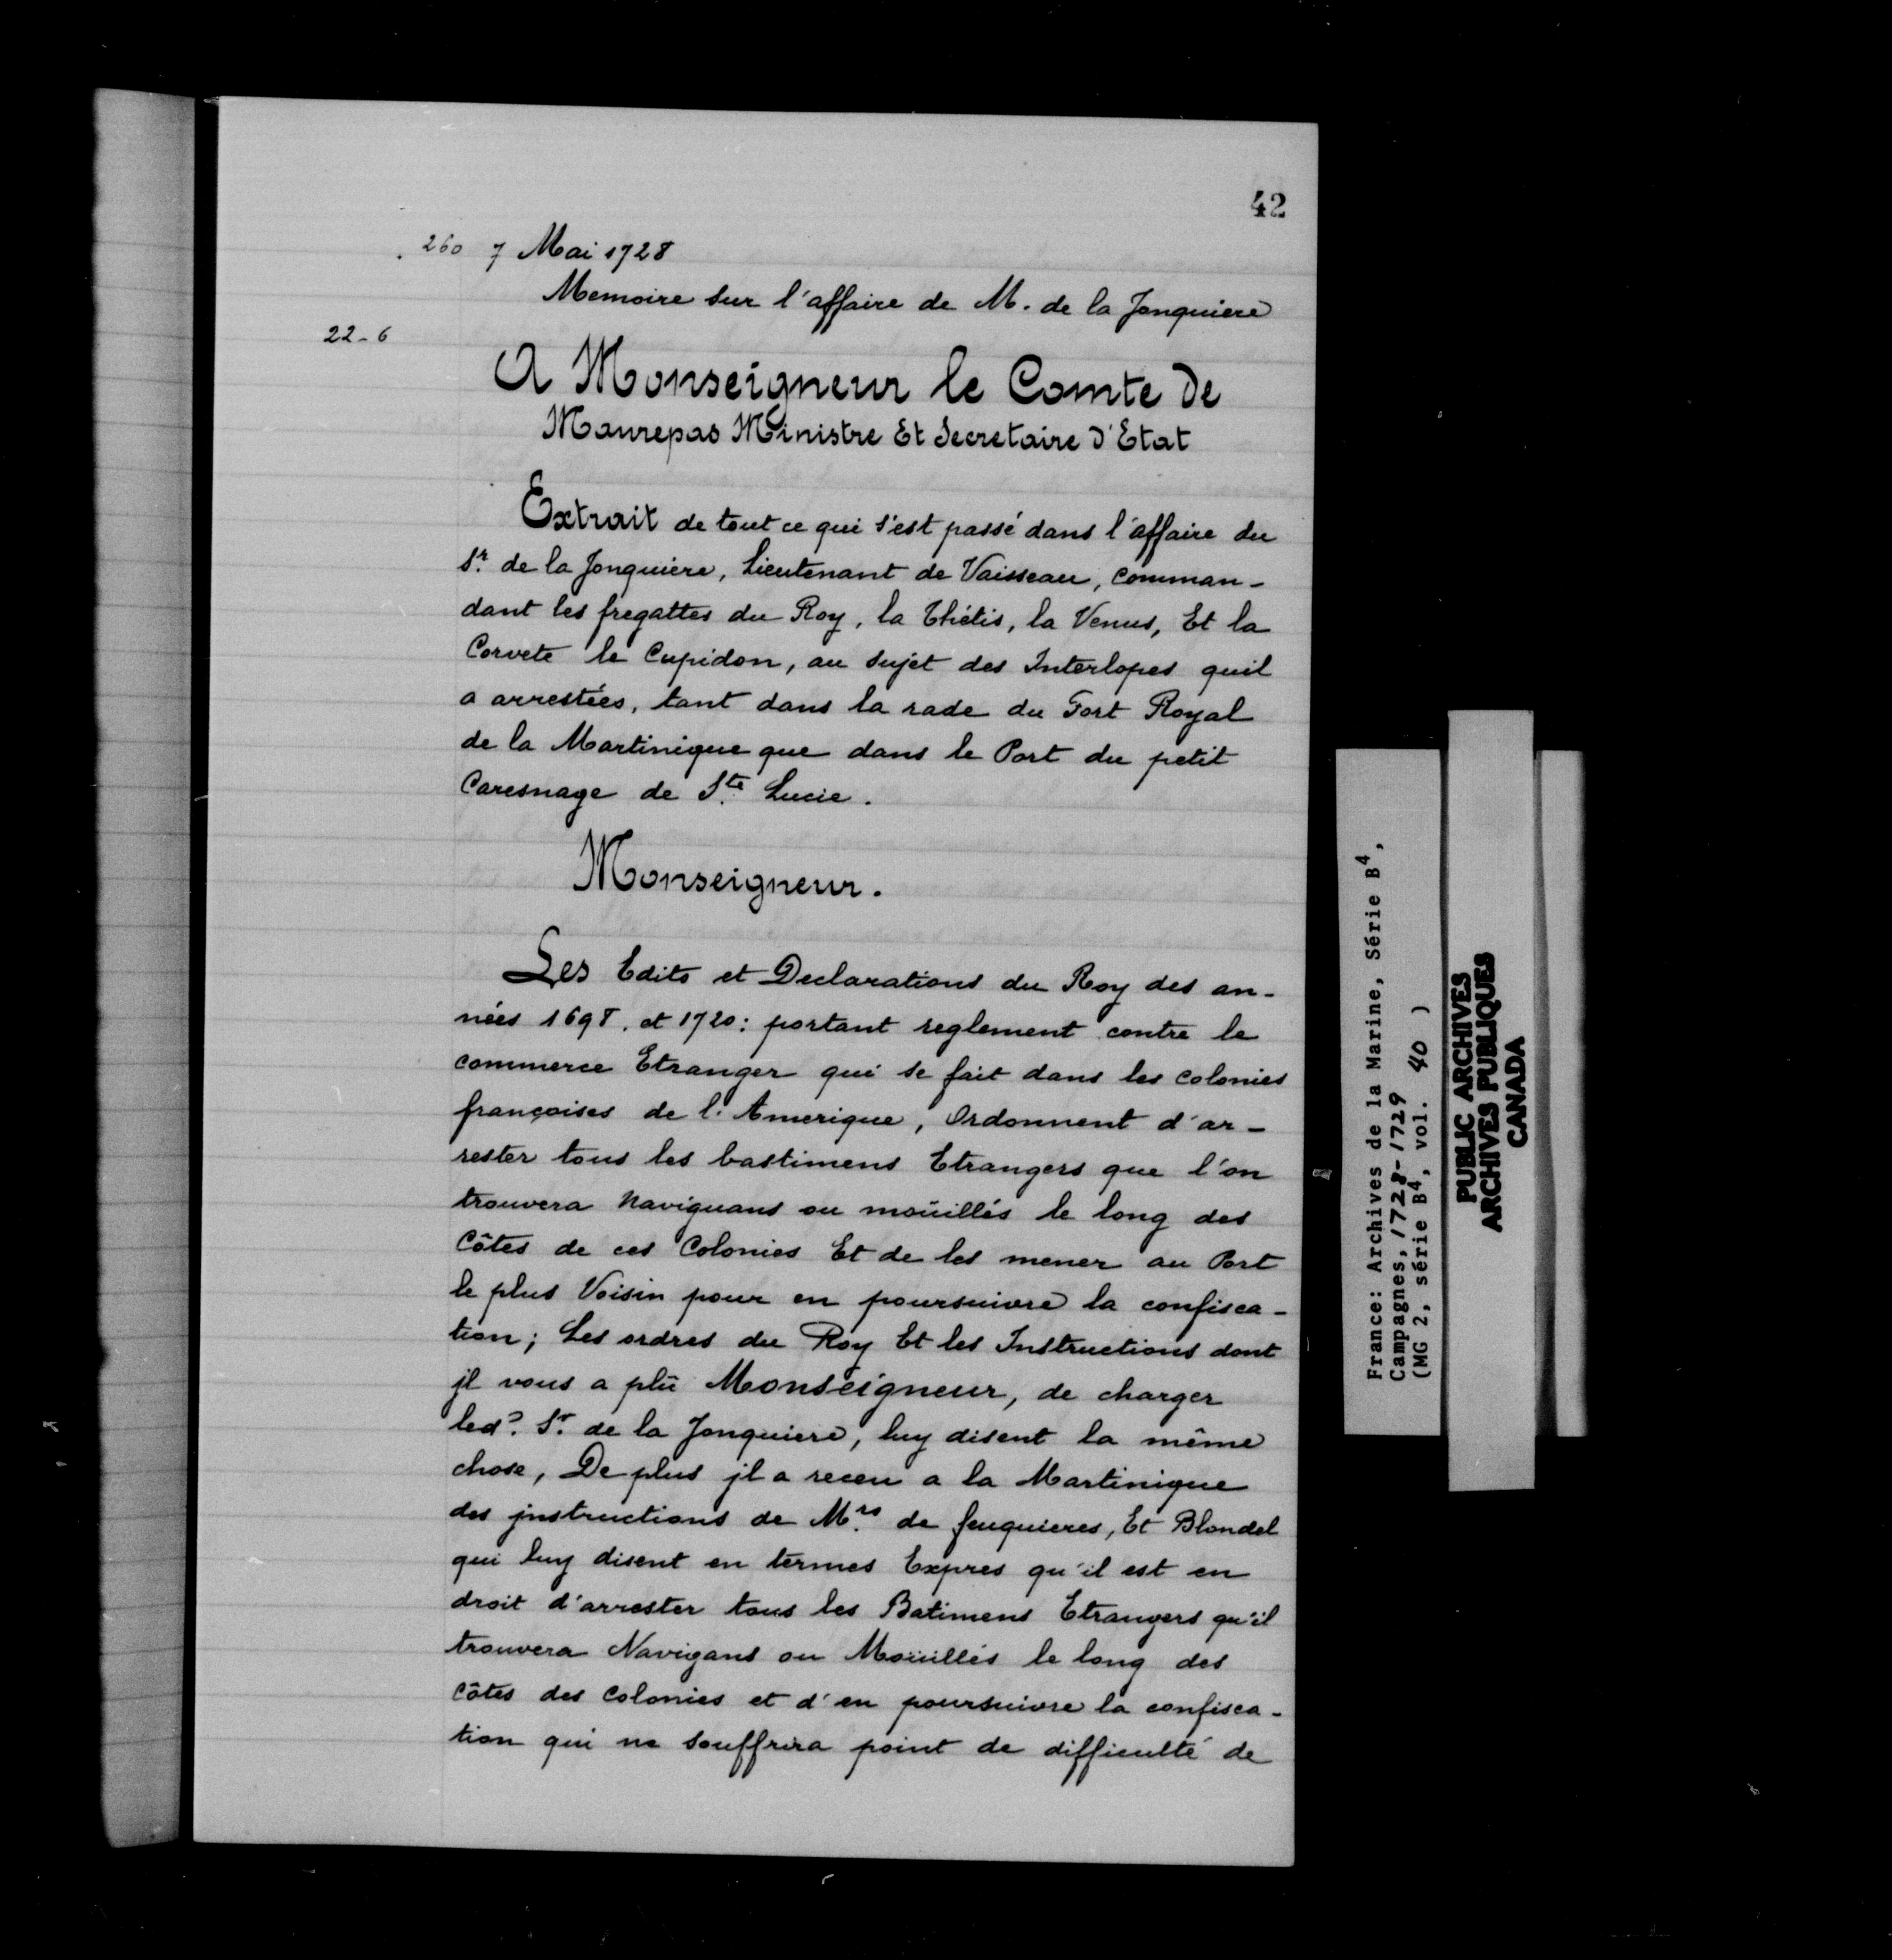 42
260 7 Mai 1728
Memoire sur l'affaire de M. de la Jonquiere
22-6
A Monseigneur le Comte De
Maurepas Ministre Et Secretaire D'Etat
Extrait de tout ce qui s'est passé dans l'affaire du
Sr. de la Jonquiere, Lieutenant de Vaisseau, comman-
dant les fregattes du Roy, la Thétis, la Venus, Et la
Corvete le Cupidon, au sujet des Interlopes quil
a arrestées, tant dans la rade du Fort Royal
de la Martinique que dans le Port du petit
Caresnage de Ste. Lucie.
Monseigneur.
Les Edits et Declarations du Roy des an-
nées 1698. et 1720: portant reglement contre le
commerce Etranger qui se fait dans les colonies
françoises de l'Amerique, Ordonnent d'ar-
rester tous les bastimens Etrangers que l'on
trouvera Naviguans ou moüillés le long des
Côtes de ces Colonies Et de les mener au Port
le plus Voisin pour en poursuivre la confisca-
tion; Les ordres du Roy Et les Instructions dont
jl vous a plû Monseigneur, de charger
led? Sr. de la Jonquiere, luy disent la même
chose, De plus jl a receu a la Martinique
des jnstructions de Mrs. de feuquieres, Et Blondel
qui luy disent en termes Expres qu'il est en
droit d'arrester tous les Batimens Etrangers qu'il
trouvera Navigans ou Moüillés le long des
côtes des colonies et d'en poursuivre la confisca-
tion qui ne souffrira point de difficulté de
France: Archives de la Marine, Série B4,
Campagnes, 1728-1729
(MG 2, série B4, vol. 40 )
PUBLIC ARCHIVES
ARCHIVES PUBLIQUES
CANADA